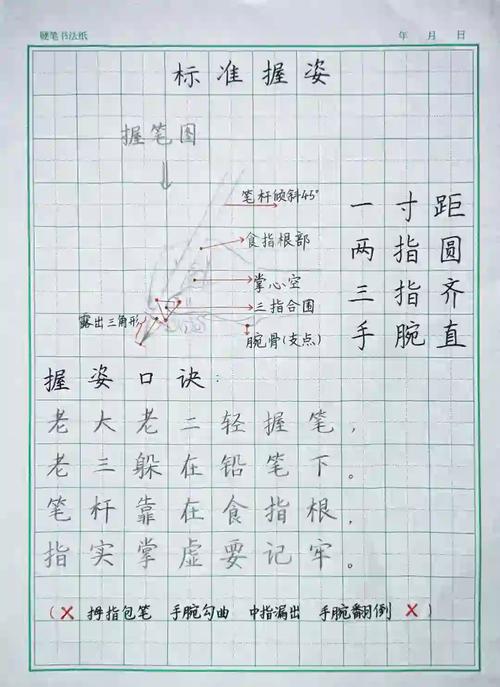 硬笔书法纸 年 月 日
标准握姿
握笔图
笔杆倾斜45°
食指根部
掌心空
三指合围
露出三角形
腕骨(支点)
一寸距
两指圆
三指齐
手腕直
握姿口诀:
老大老二轻握笔,
老三躲在铅笔下。
笔杆靠在食指根,
指实掌虚要记牢。
(× 拇指包笔 手腕勾曲 中指漏出 手腕翻倒 ×)